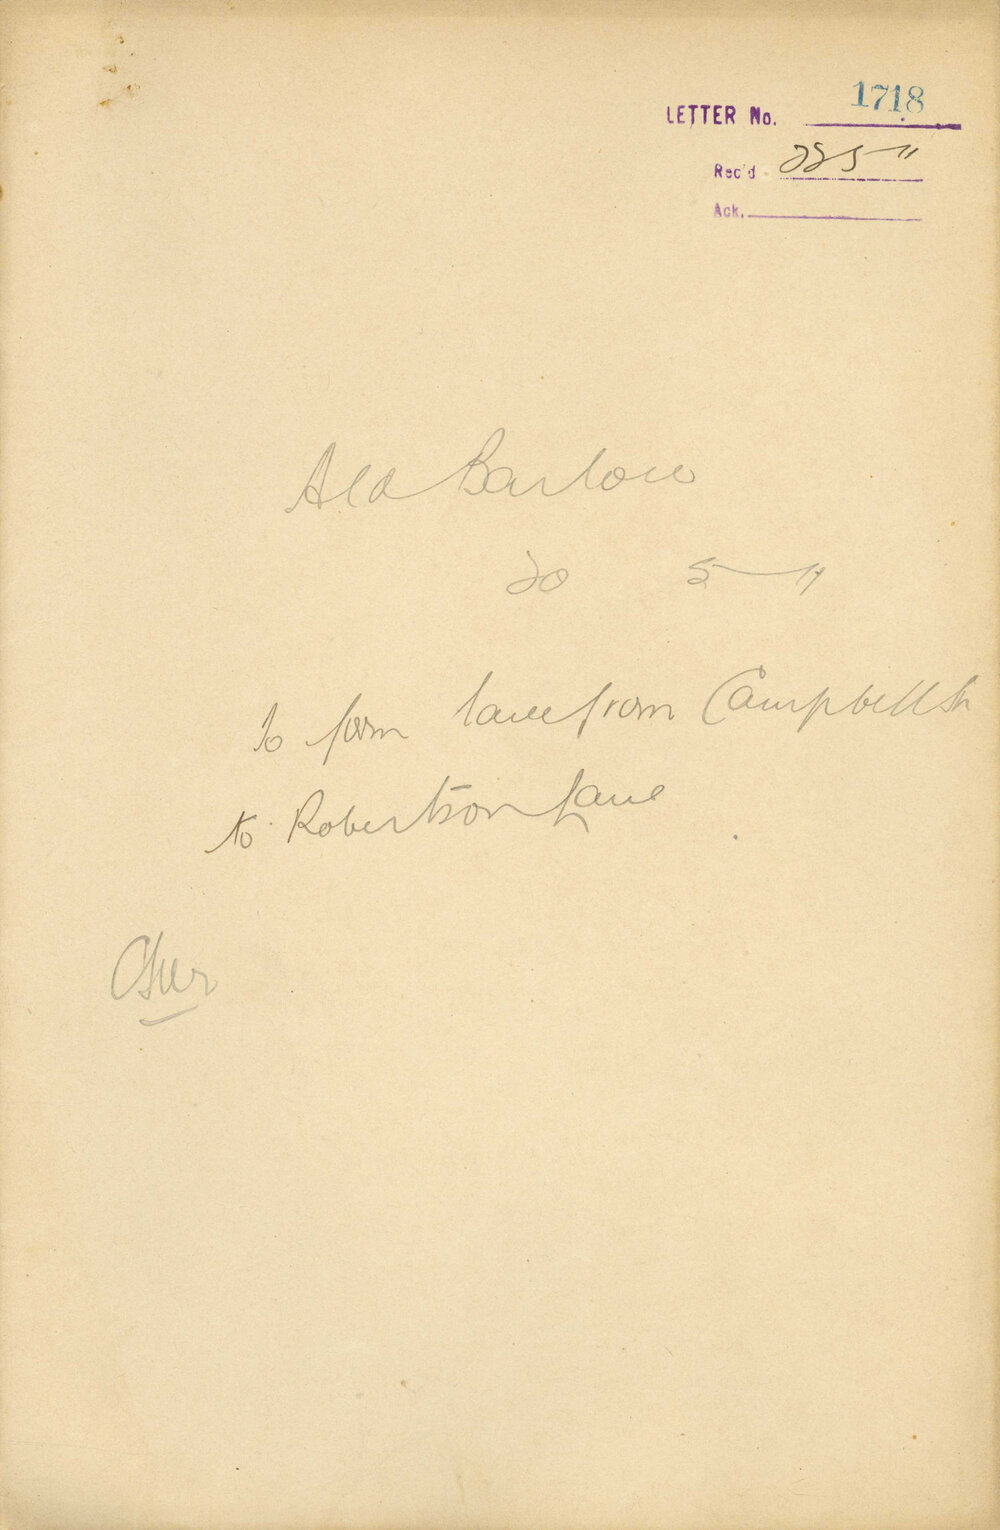 LETTER No. 1718
Rec'd 22 5 11
Ack.
Ald Barlow
20 5 11
to form lane from Campbell St
to Robertson Lane